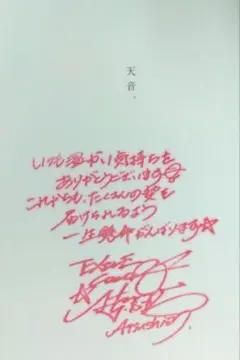 天音。
いつも温かい気持ちを
ありがとうございます
これからも、たくさんの愛を
届けられるよう
一生懸命がんばります☆
EXILE
Atsushi